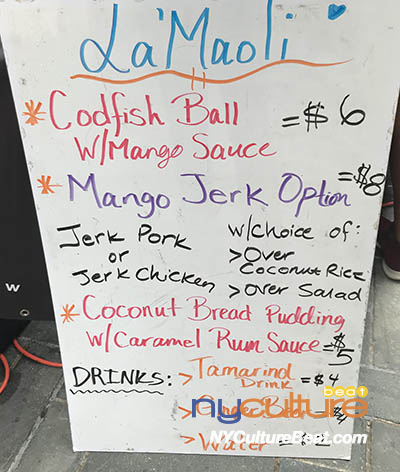 La'Maoli
*Codfish Ball =$6
w/Mango Sauce
*Mango Jerk Option =$8
Jerk Pork
or
Jerk Chicken
w/choice of:
>Over
Coconut Rice
>over Salad
*Coconut Bread Pudding
w/Caramel Rum Sauce=$5
DRINKS: >Tamarind
Drink =$4
> =$4
>Water
w
nyculture
beat
NYCultureBeat.com